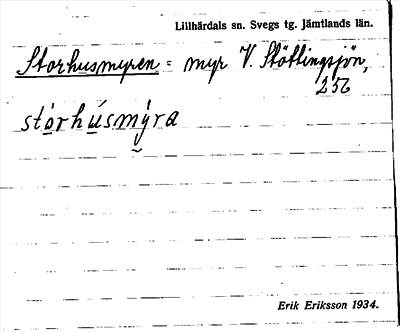 Lillhärdals sn. Svegs tg. Jämtlands län.
Storhusmyren = myr V. Stöttingsjön,
256
stórhúsmýra
Erik Eriksson 1934.